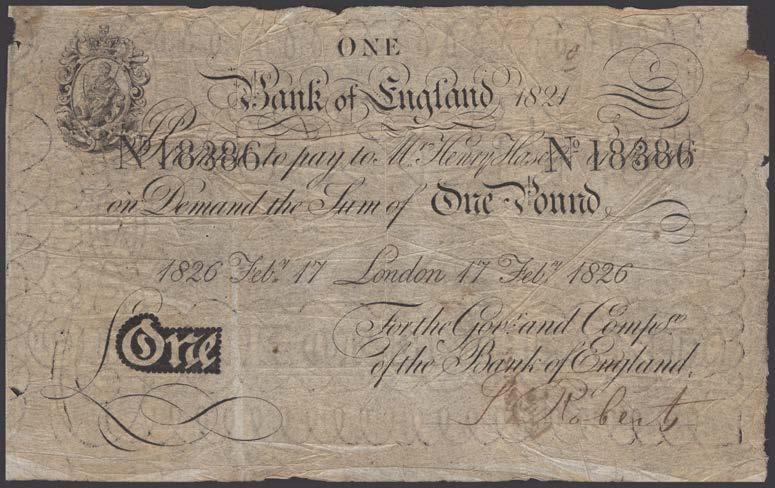 ONE
Bank of England 1821
Nº 18386 to pay to Mr. Henry Hase Nº 18386
on Demand the Sum of One Pound
1826 Feby. 17 London 17 Feby. 1826
For the Govr. and Compa.
of the Bank of England.
One
Roberts